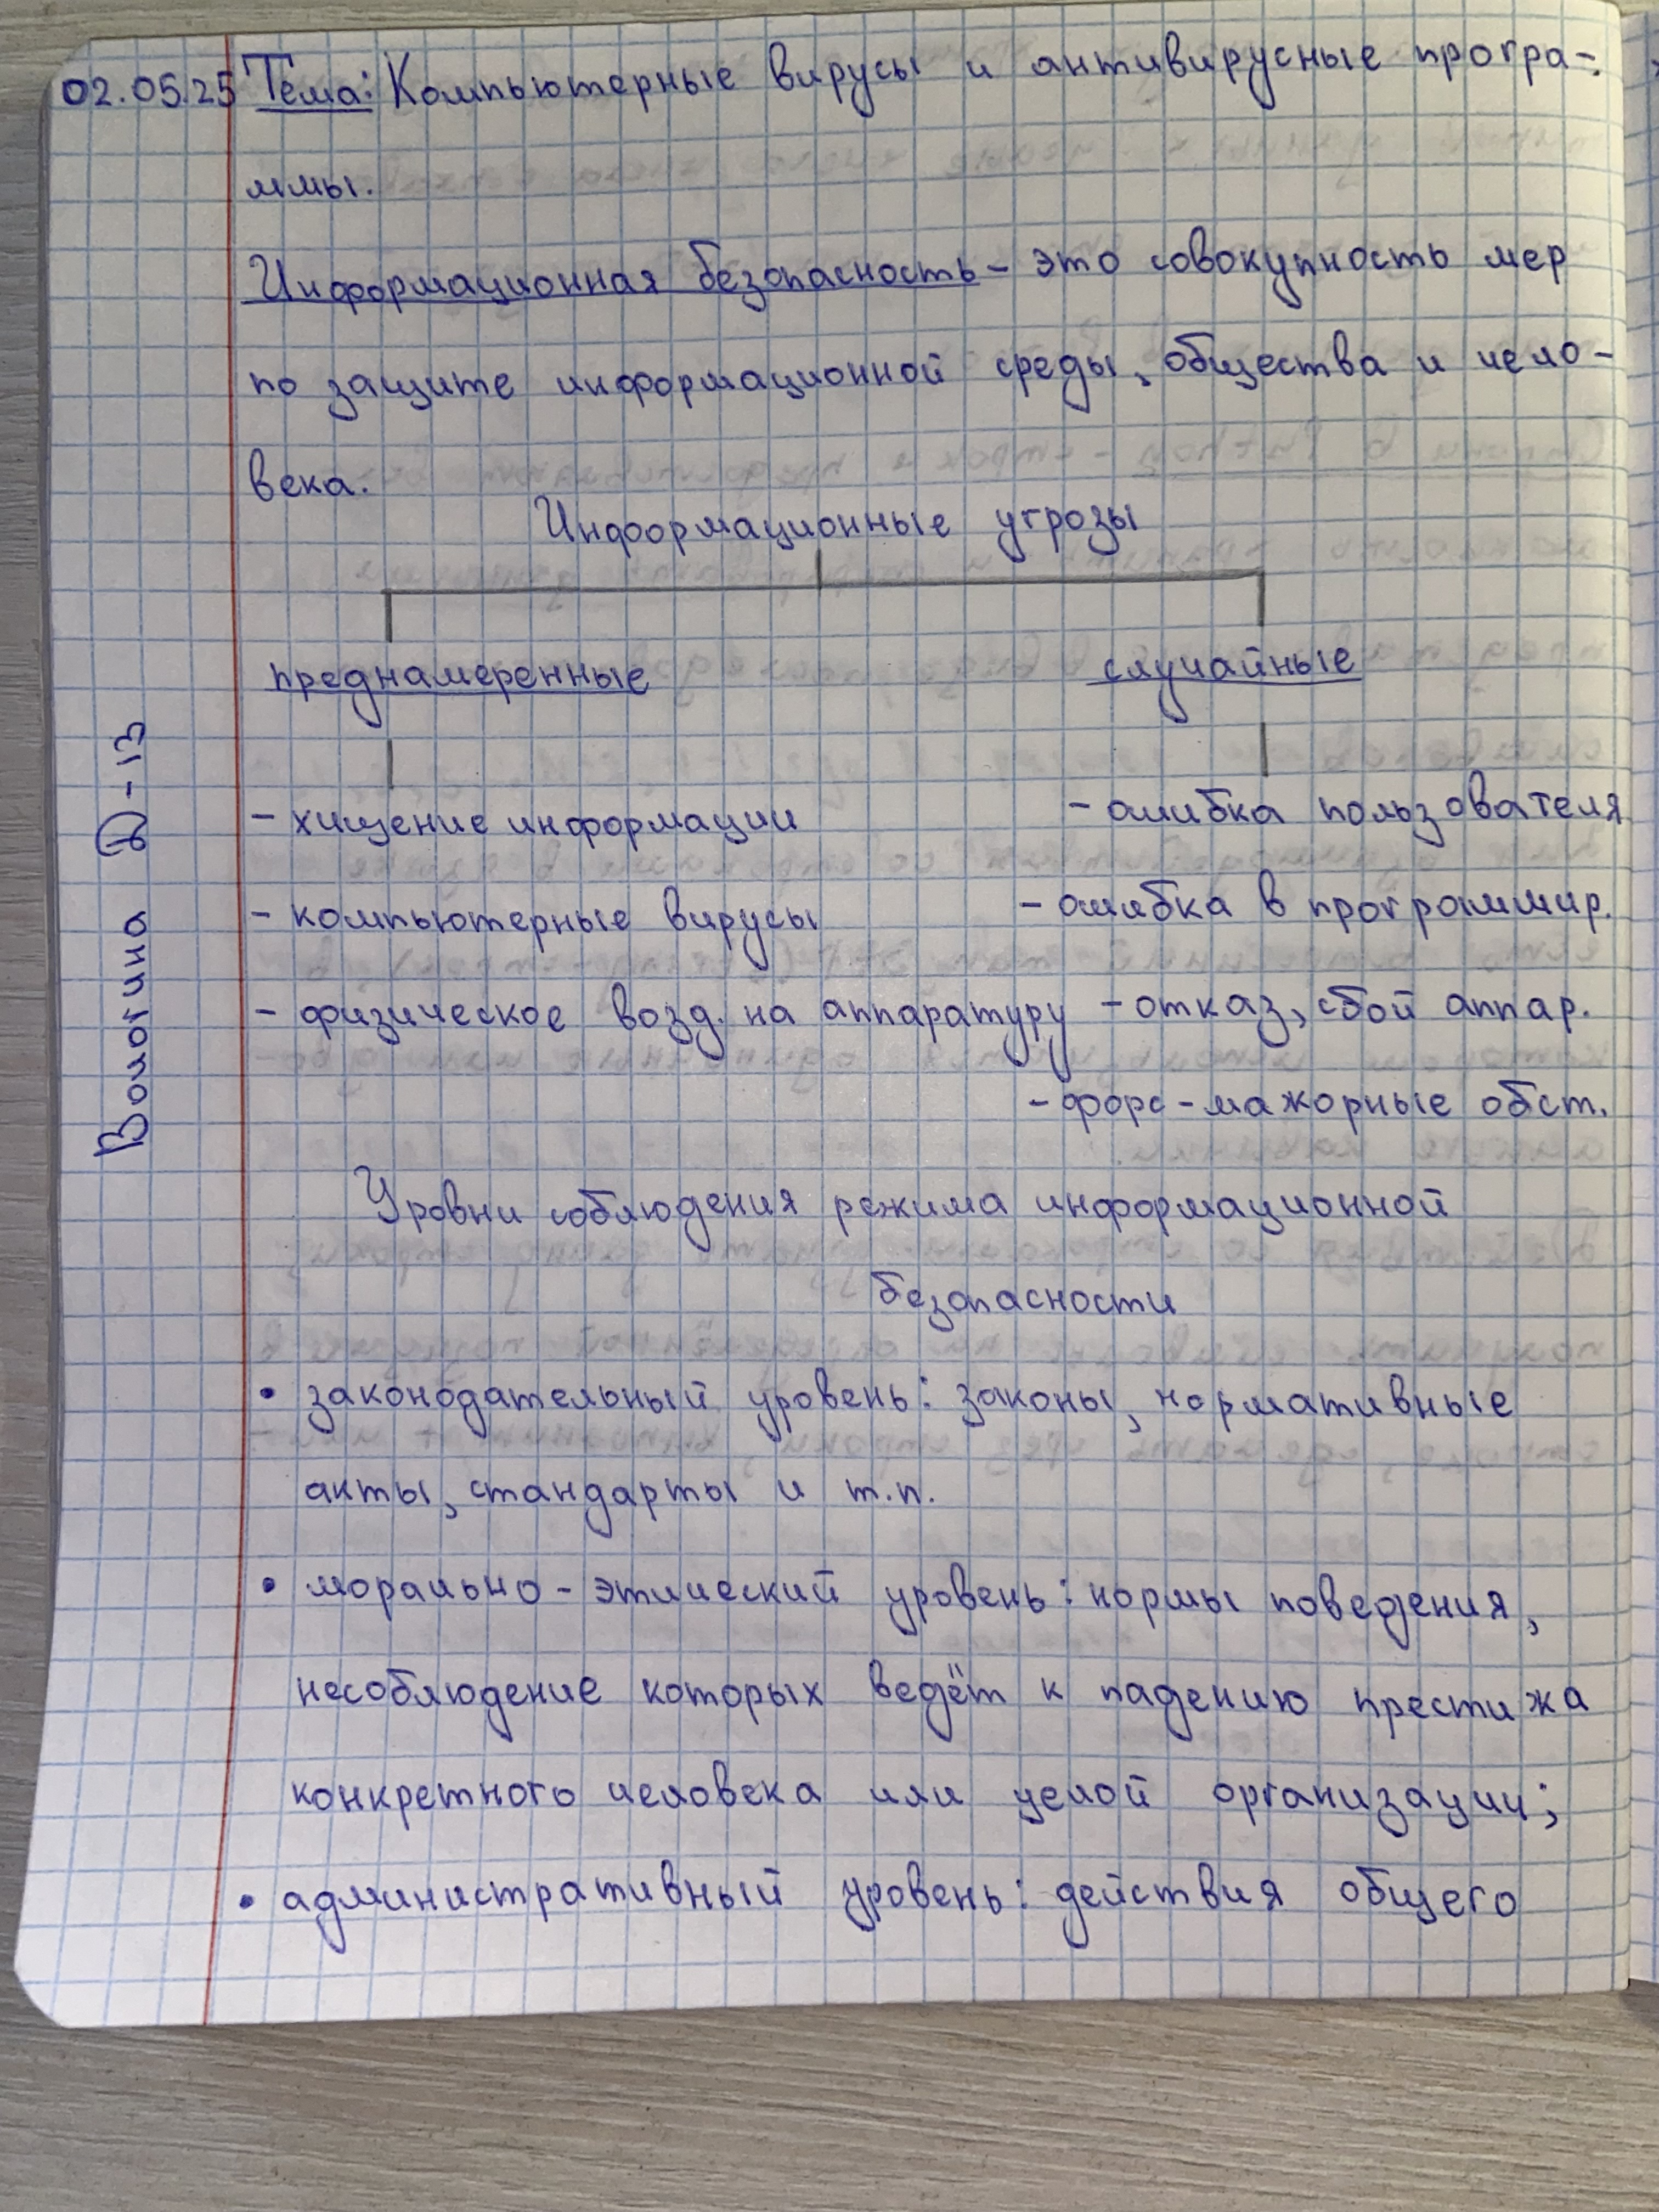 02.05.25 Тема: Компьютерные вирусы и антивирусные програ-
ммы.
Информационная безопасность - это совокупность мер
по защите информационной среды, общества и чело-
века.
Информационные угрозы
преднамеренные случайные
- хищение информации - ошибка пользователя
- компьютерные вирусы - ошибка в программир.
- физическое возд. на аппаратуру - отказ, сбой аппар.
- форс-мажорные обст.
Уровни соблюдения режима информационной
безопасности
• законодательный уровень: законы, нормативные
акты, стандарты и т.п.
• морально-этический уровень: нормы поведения,
несоблюдение которых ведёт к падению престижа
конкретного человека или целой организации;
• административный уровень: действия общего
Вологина Д-13